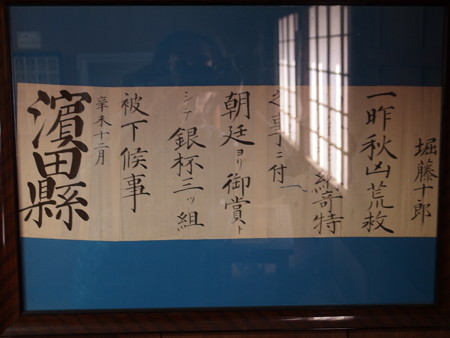 堀藤十郎
一昨秋凶荒救
奇特
之事ニ付
朝廷ヨリ御賞ト
シテ銀杯三ツ組
被下候事
辛未十二月
濱田縣